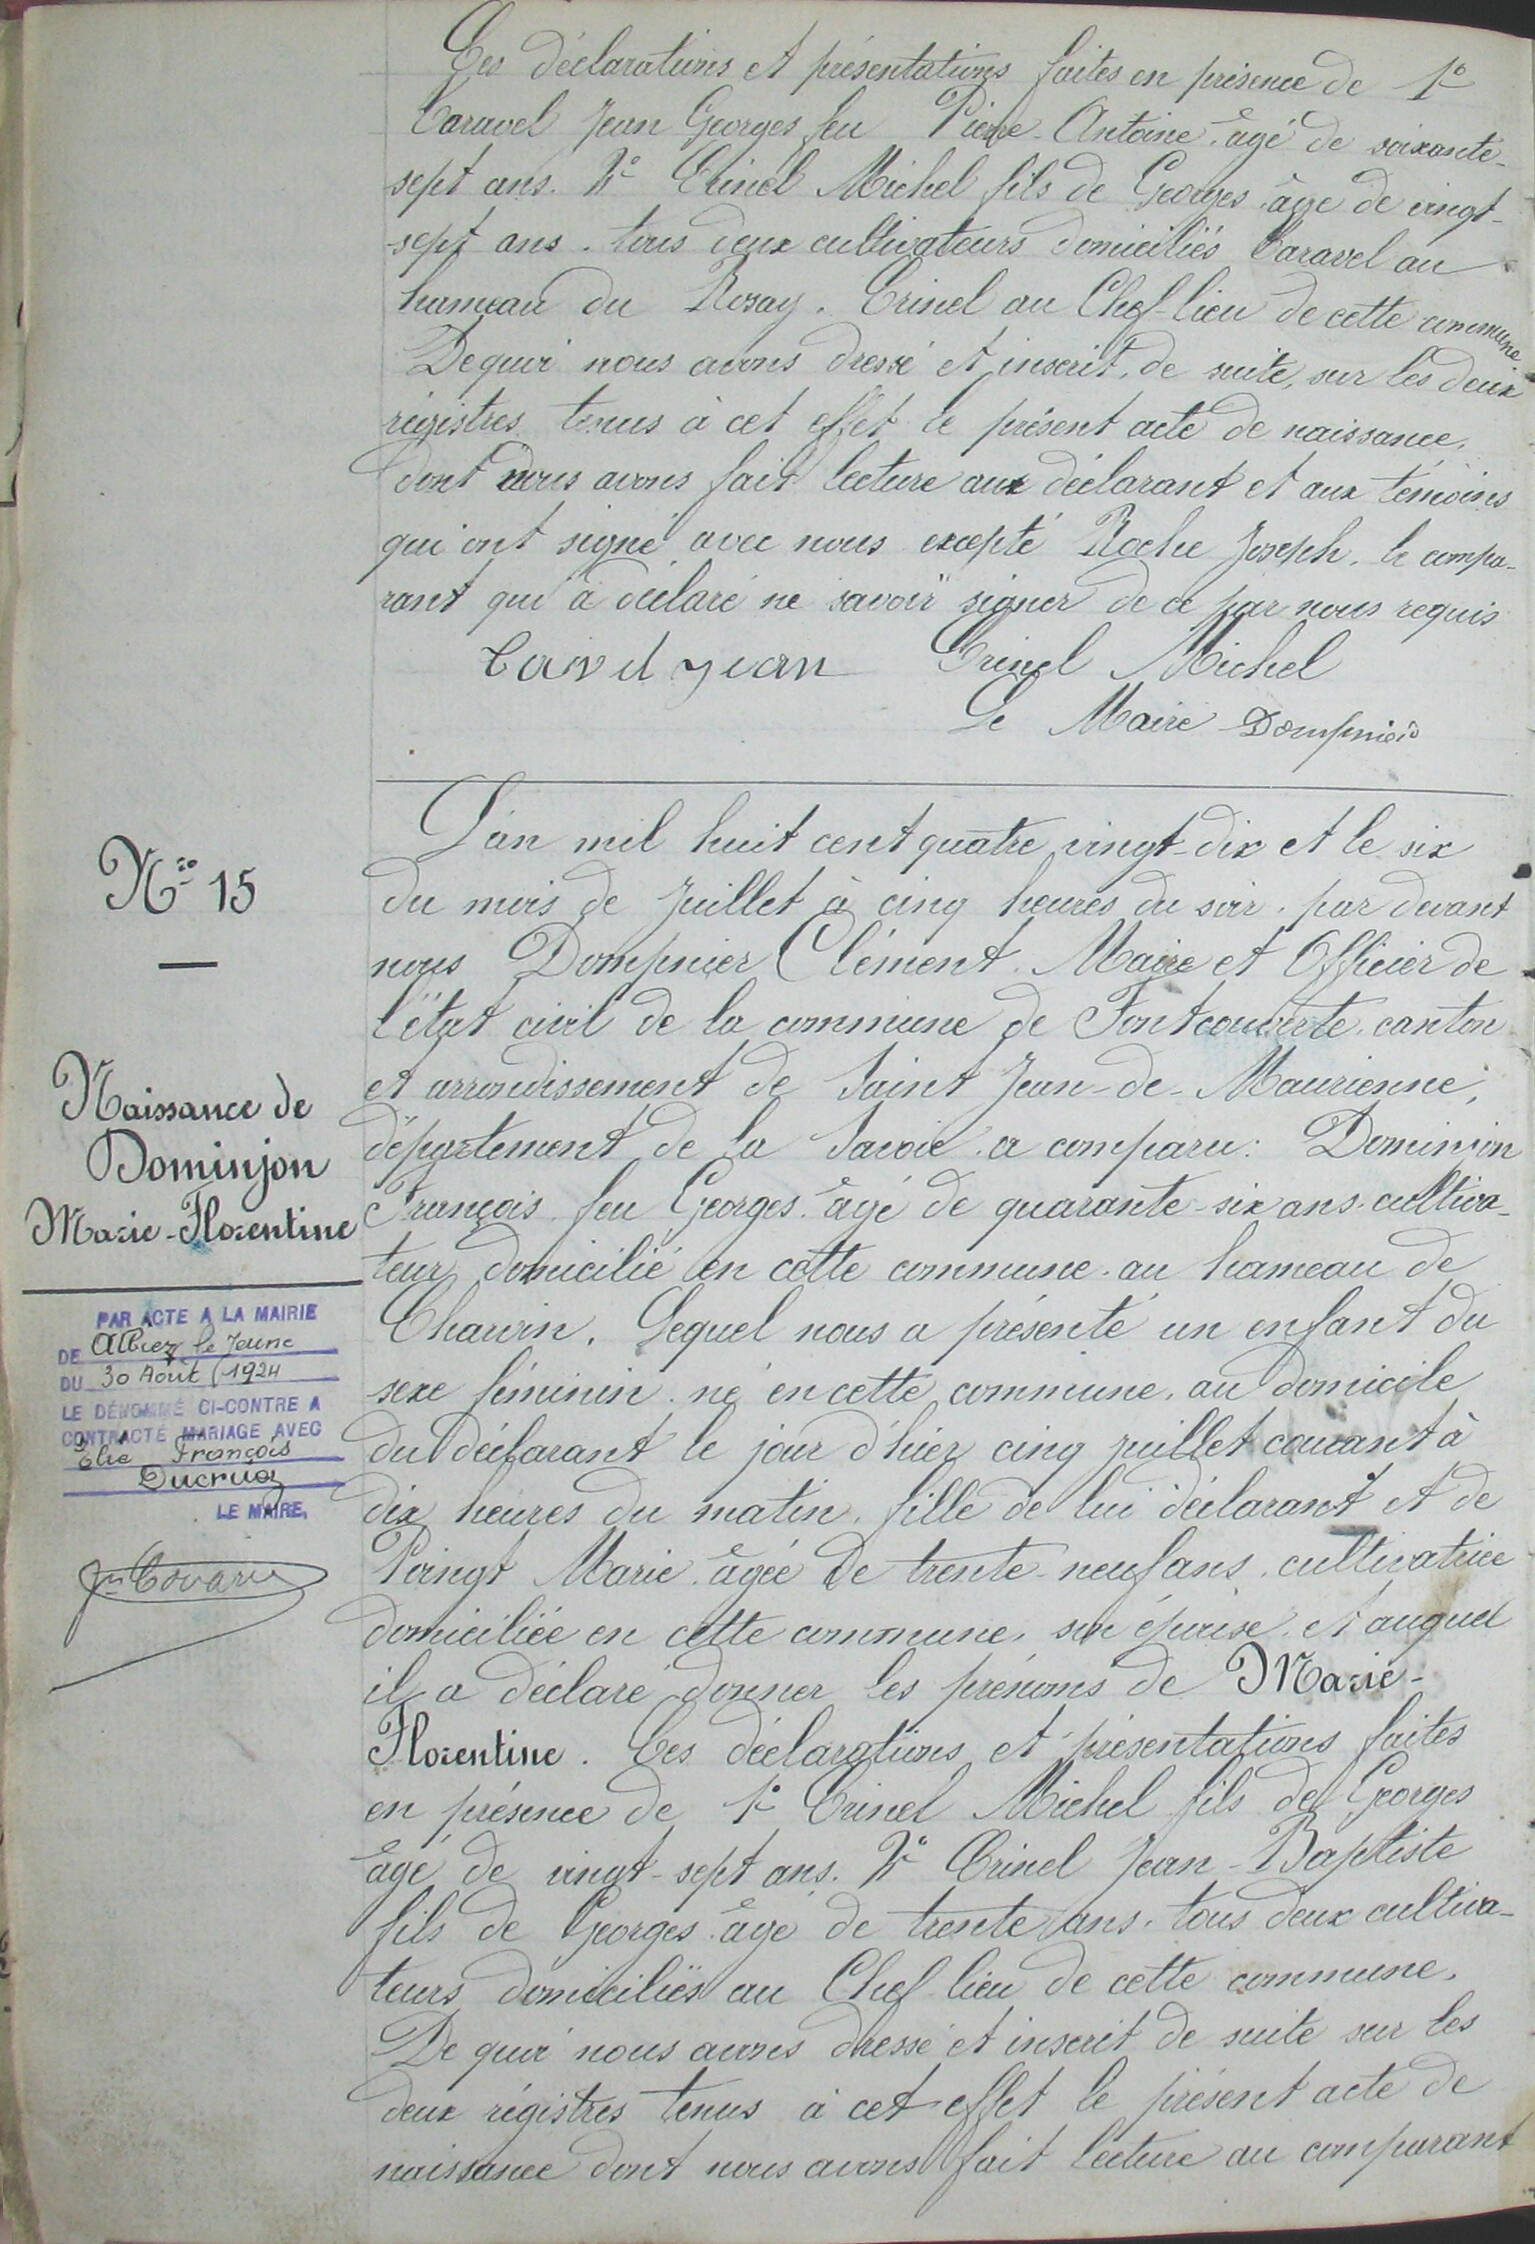 Ces déclarations et présentations faites en présence de 1º
Taravel Jean Georges feu Pierre-Antoine âgé de soixante-
sept ans. 2º Crinel Michel fils de Georges âgé de vingt-
sept ans. tous deux cultivateurs domiciliés Taravel au
hameau du Rosay. Crinel au Chef-lieu de cette commune
De quoi nous avons dressé et inscrit, de suite, sur les deux
régistres tenus à cet effet le présent acte de naissance,
dont nous avons fait lecture aux déclarant et aux témoins
qui ont signé avec nous excepté Roche Joseph. le compa-
rant qui a déclaré ne savoir signer de ce par nous requis
Crinel Michel
Le Maire Dompnier
Nº 15
Naissance de
Dominjon
Marie-Florentine
PAR ACTE A LA MAIRIE
DE Albiez le Jeune
DU 30 Août 1924
LE DÉNOMMÉ CI-CONTRE A
CONTRACTÉ MARIAGE AVEC
Elie François
Ducruez
LE MAIRE,
L'an mil huit cent quatre vingt-dix et le six
du mois de Juillet à cinq heures du soir. par devant
nous Dompnier Clément. Maire et Officier de
l'état civil de la commune de Fontcouverte, canton
et arrondissement de Saint Jean-de-Maurienne,
département de la Savoie a comparu: Dominjon
François feu Georges âgé de quarante-six ans. cultiva-
teur domicilié en cette commune. au hameau de
Charvin. Lequel nous a présenté un enfant du
sexe féminin. né en cette commune, au domicile
du déclarant le jour d'hier cinq juillet courant à
dix heures du matin, fille de lui déclarant et de
Poingt Marie âgée de trente-neuf ans. cultivatrice
domiciliée en cette commune, son épouse. et auquel
il a déclaré donner les prénoms de Marie-
Florentine. Ces déclarations et présentations faites
en présence de 1º Crinel Michel fils de Georges
âgé de vingt-sept ans. 2º Crinel Jean-Baptiste
fils de Georges âgé de trente ans. tous deux cultiva-
teurs domiciliés au Chef lieu de cette commune.
De quoi nous avons dressé et inscrit de suite sur les
deux régistres tenus à cet effet le présent acte de
naissance dont nous avons fait lecture au comparant